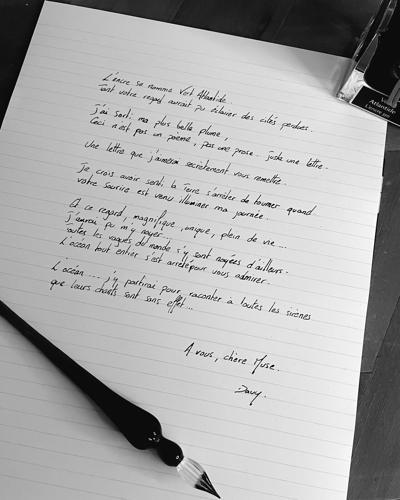 L'encre se nomme Vert Atlantide...
Tant votre regard aurait pu éclairer des cités perdues...
J'ai sorti ma plus belle plume,
Ceci n'est pas un poème, pas une prose... Juste une lettre..
Une lettre que j'aimerai secrètement vous remettre..
Je crois avoir senti la Terre s'arrêter de tourner quand
votre sourire est venu illuminer ma journée..
Et ce regard, magnifique, unique, plein de vie....
j'aurai pu m'y noyer...
Toutes les vagues du monde s'y sont noyées d'ailleurs..
L'océan tout entier s'est arrêté pour vous admirer..
L'océan.... j'y partirai pour raconter à toutes les sirènes
que leurs chants sont sans effet...
A vous, chère Muse.
Davy.
Atlantide